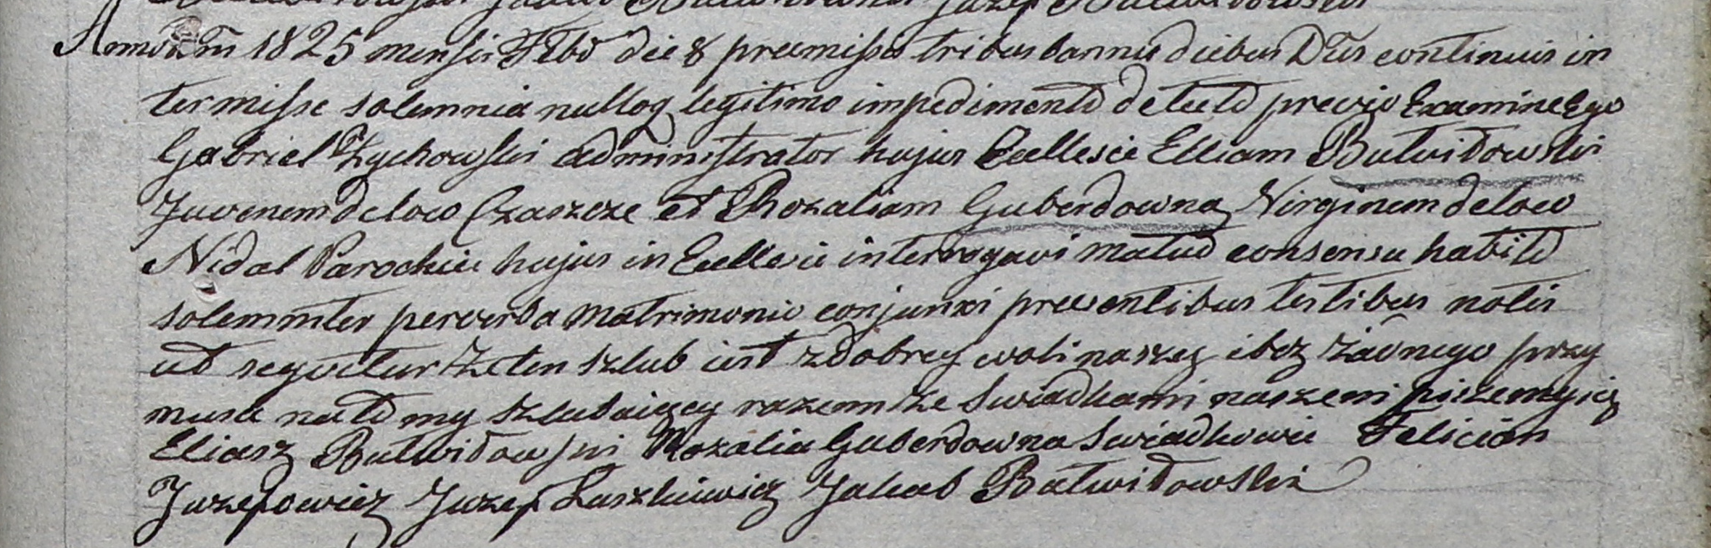 Józef Butwidowski
Anno Dni 1825 mensis Febr̃ die 8 præmissis tribus bannis diebus Dñis continuis in
ter missæ solemnia nulloq legitimo impedimentо detecto previo Examine Ego
Gabriel Zychowski administrator hujus Ecclesiæ Eliam Butwidowski
Juvenem de loco Czaszcze et Rozaliam Guberdowną Virginem de loco
Nidal Parochiæ hujus in Ecclesia interrogavi mutuo consensu habito
solemniter per verba matrimonio conjunxi presentibus testibus notis
ut seqvitur Że ten szlub iest z dobrey woli naszey i bez żadnego przy
musu na to my szlubuiący razem ze swiadkami naszemi piszemy się
Eliasz Butwidowski Rozalia Guberdowna Swiadkowie Felician
Juzefowicz Juzef Laszkiewicz Jakub Butwidowski